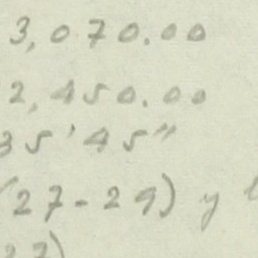 3,070.00
2,450.00
35'45"
(27-29) y
27)